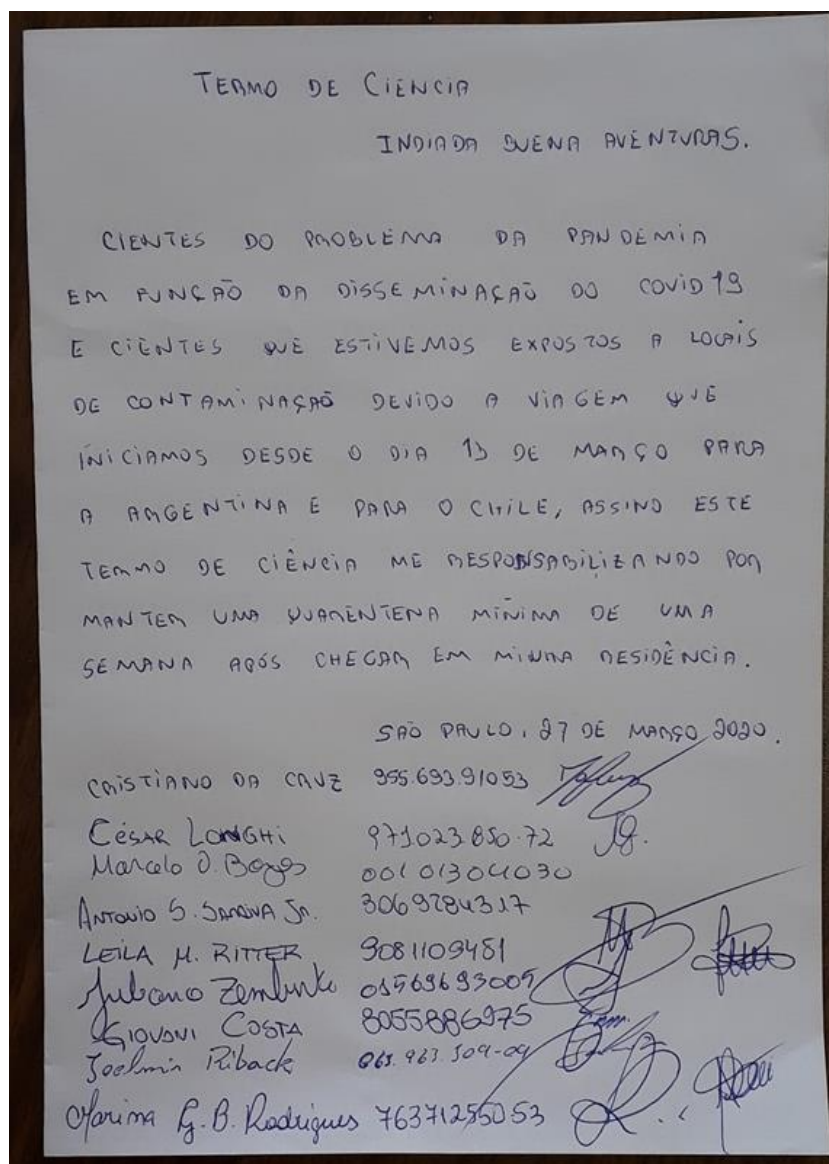 TERMO DE CIÊNCIA
INDIADA BUENA AVENTURAS.
CIENTES DO PROBLEMA DA PANDEMIA
EM FUNÇÃO DA DISSEMINAÇÃO DO COVID 19
E CIENTES QUE ESTIVEMOS EXPOSTOS A LOCAIS
DE CONTAMINAÇÃO DEVIDO A VIAGEM QUE
INICIAMOS DESDE O DIA 13 DE MARÇO PARA
A ARGENTINA E PARA O CHILE, ASSINO ESTE
TERMO DE CIÊNCIA ME RESPONSABILIZANDO POR
MANTER UMA QUARENTENA MÍNIMA DE UMA
SEMANA APÓS CHEGAR EM MINHA RESIDÊNCIA.
SÃO PAULO, 27 DE MARÇO 2020.
CRISTIANO DA CRUZ 955.693.91053
CÉSAR LONGHI 971.023.850-72
Marcelo O. Borges 00101304030
ANTONIO S. JR. 3069284317
LEILA M. RITTER 9081109481
01569693005
GIOVANI COSTA 8055886975
Joelmir Riback
Marina G. B. Rodrigues 76371255053